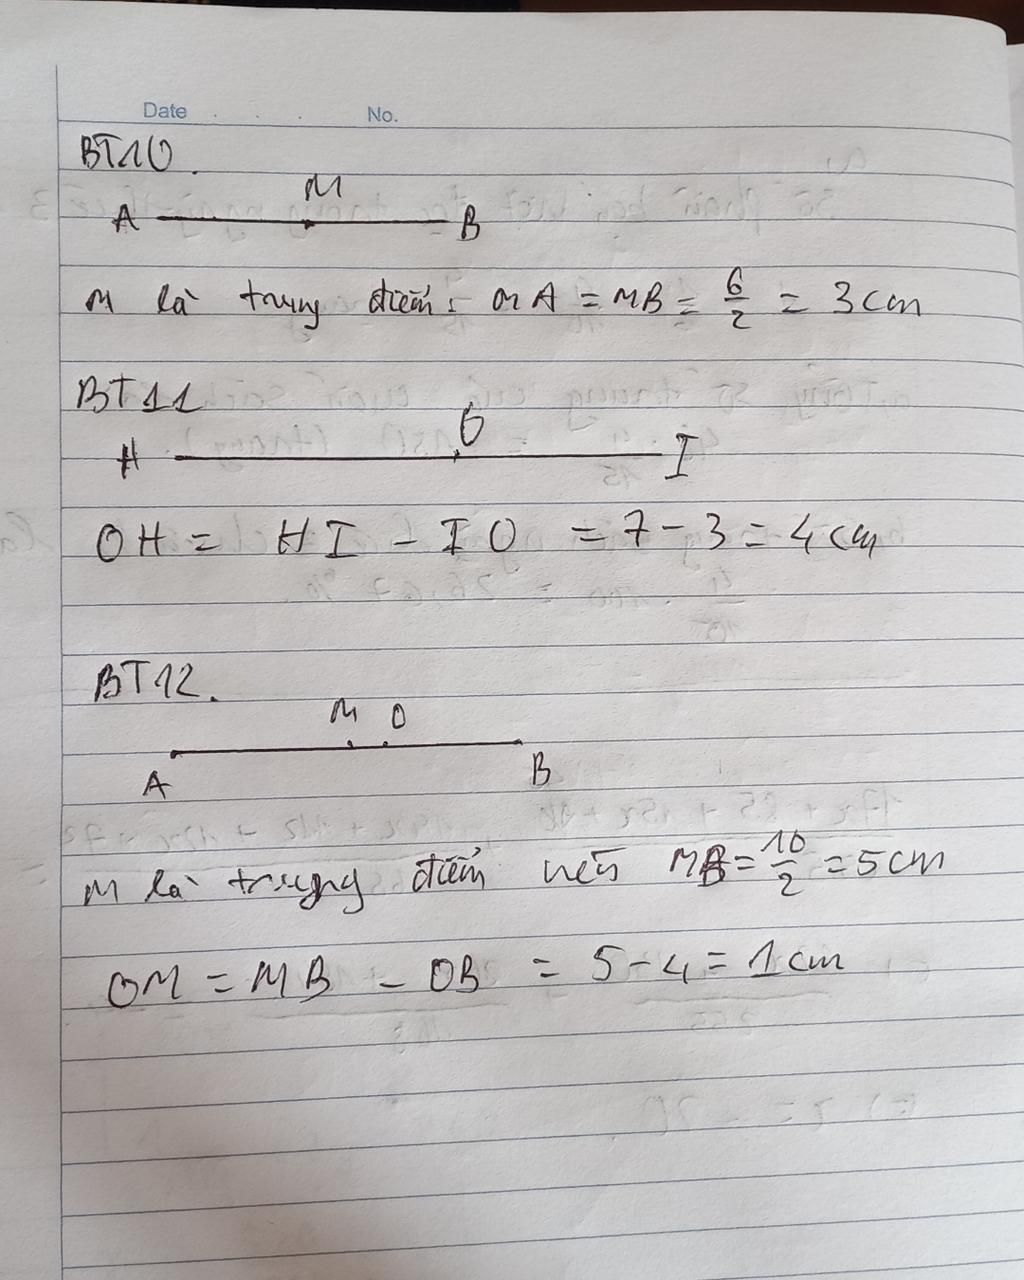 Date No.
BT10.
M
A B
M là trung điểm: MA = MB = 6/2 = 3cm
BT11
O
H I
OH = HI - IO = 7 - 3 = 4 cm
BT12.
M O
A B
M là trung điểm nên MB = 10/2 = 5cm
OM = MB - OB = 5 - 4 = 1 cm